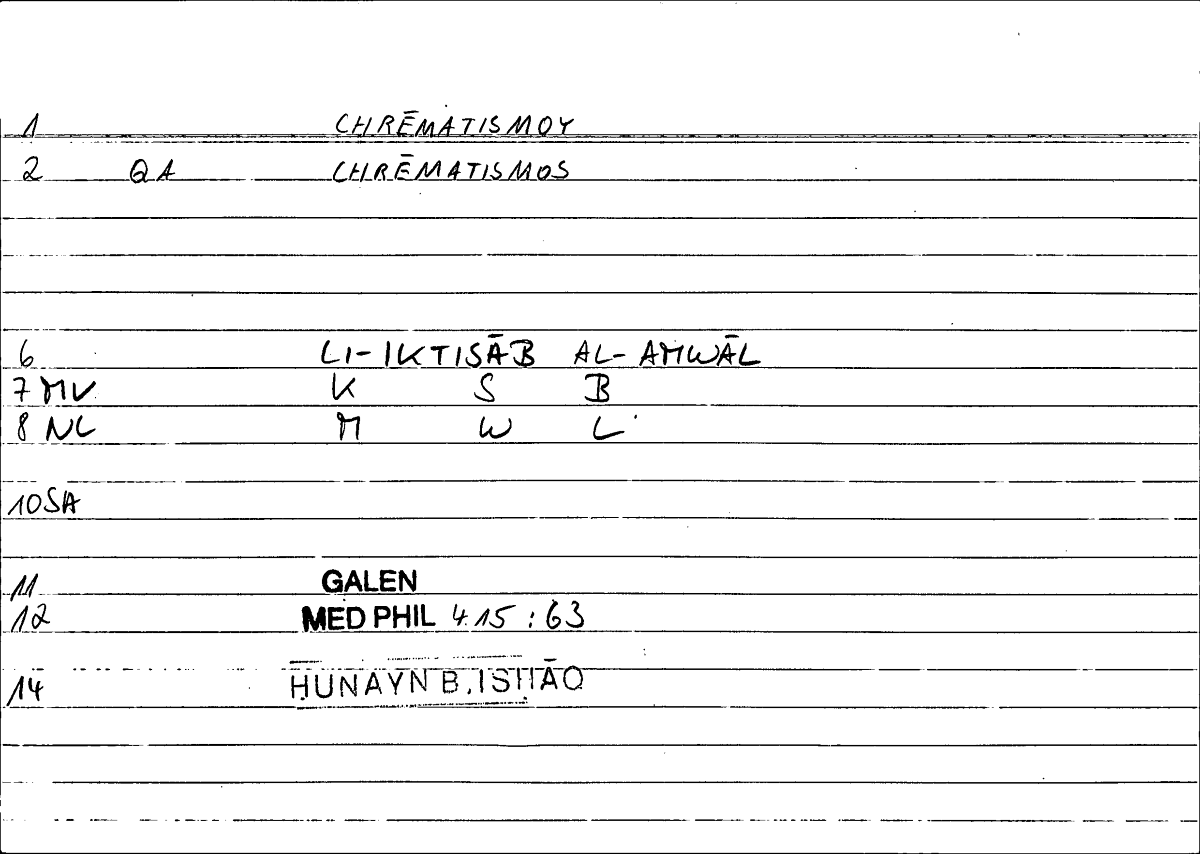 1 CHRĒMATISMOY
2 QA CHRĒMATISMOS
6 LI-IKTISĀB AL-AMWĀL
7 MV K S B
8 NL M W L
10 SA
11 GALEN
12 MED PHIL 4.15 : 63
14 ḤUNAYN B. ISḤĀQ